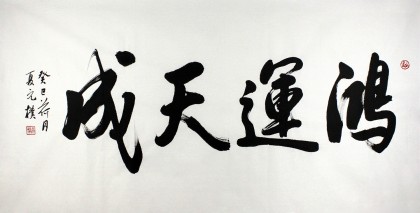 鴻運天成
癸巳荷月
夏元樸